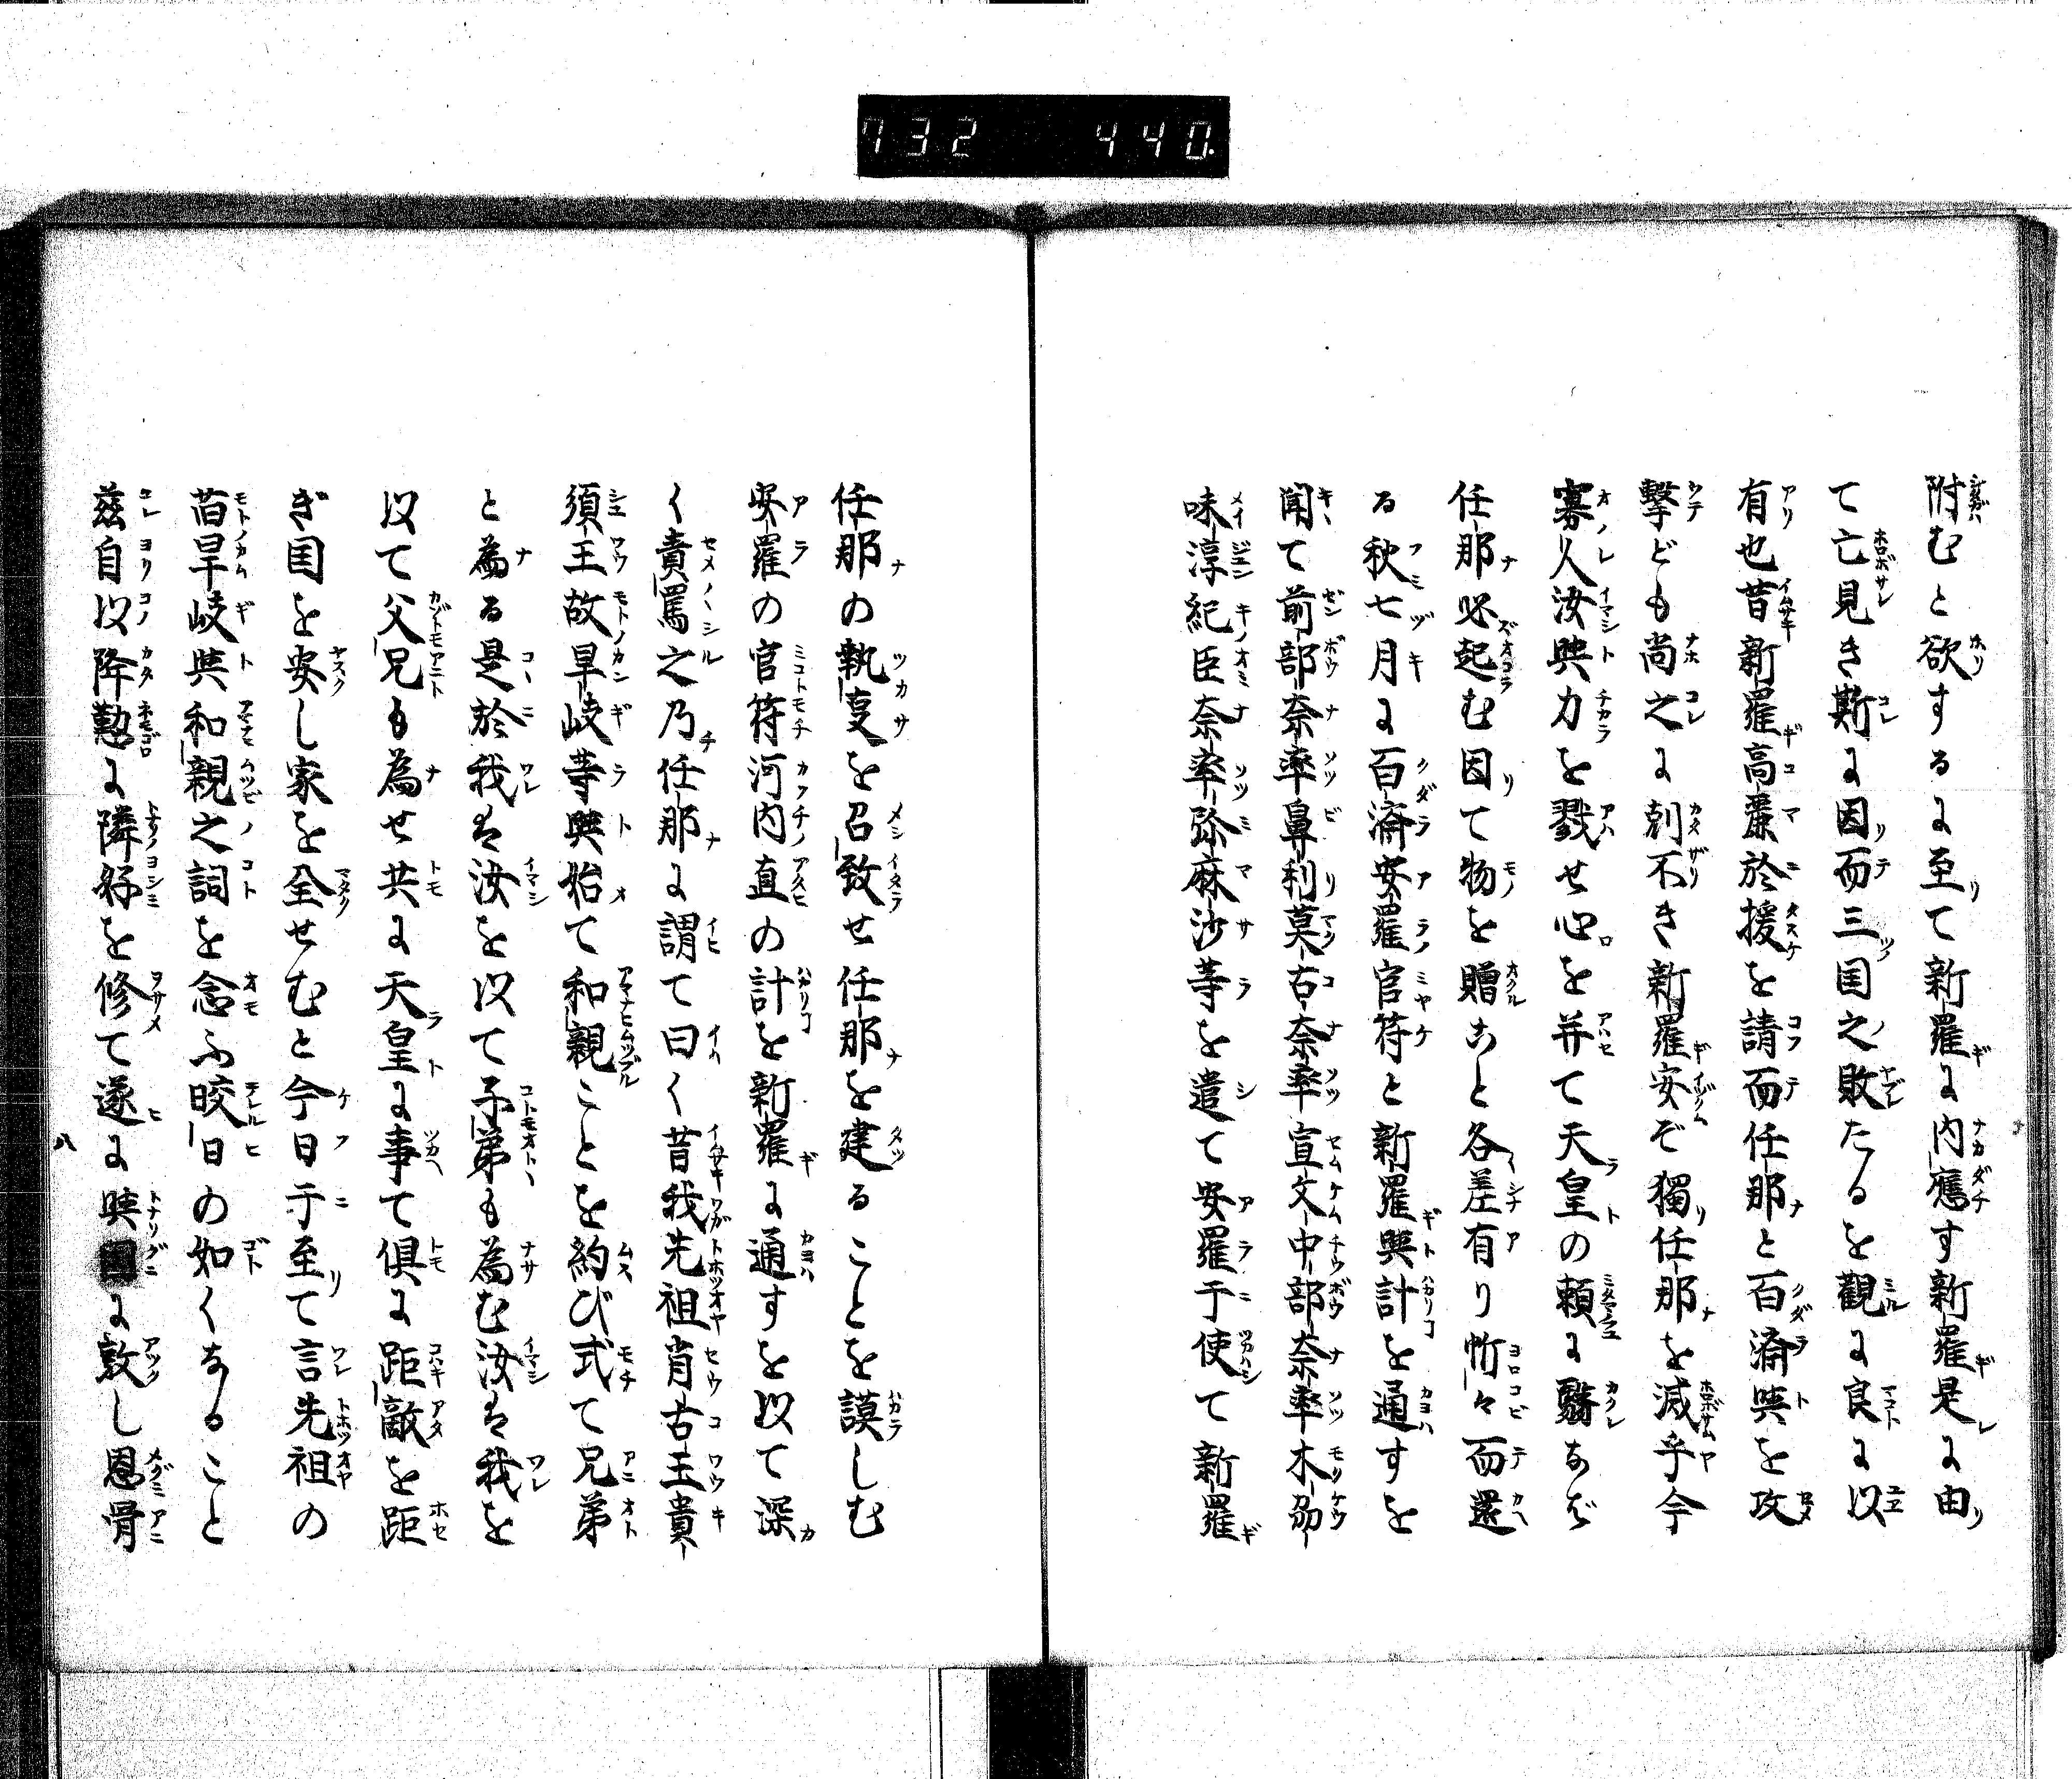 732 440.
附むと欲するに至て新羅に内應す新羅是に由
て亡見き斯に因而三国之敗たるを觀に良に以
有也昔新羅高麗於援を請而任那と百濟與を攻
擊ども尚之に剋不き新羅安ぞ獨任那を滅乎今
寡人汝與力を戮せ心を并て天皇の頼に翳あば
任那必起む因て物を贈ると各差有り忻々而還
る秋七月に百濟安羅官符と新羅與計を通すを
聞て前部奈率鼻利莫古奈率宣文中部奈率木刕
味淳紀臣奈率弥麻沙等を遣て安羅于使て新羅
任那の執叓を召致せ任那を建ることを謨しむ
安羅の官符河内直の計を新羅に通すを以て深
く責罵之乃任那に謂て曰く昔我先祖肖古王貴
須王故旱岐等與始て和親ことを約び式て兄弟
と為る是於我は汝を以て子弟も為む汝は我を
以て父兄も為せ共に天皇に事て倶に距敵を距
ぎ国を安し家を全せむと今日于至て言先祖の
旧旱岐與和親之詞を念ふ晈日の如くあること
茲自以降懃に隣好を修て遂に與国に敦し恩骨
八